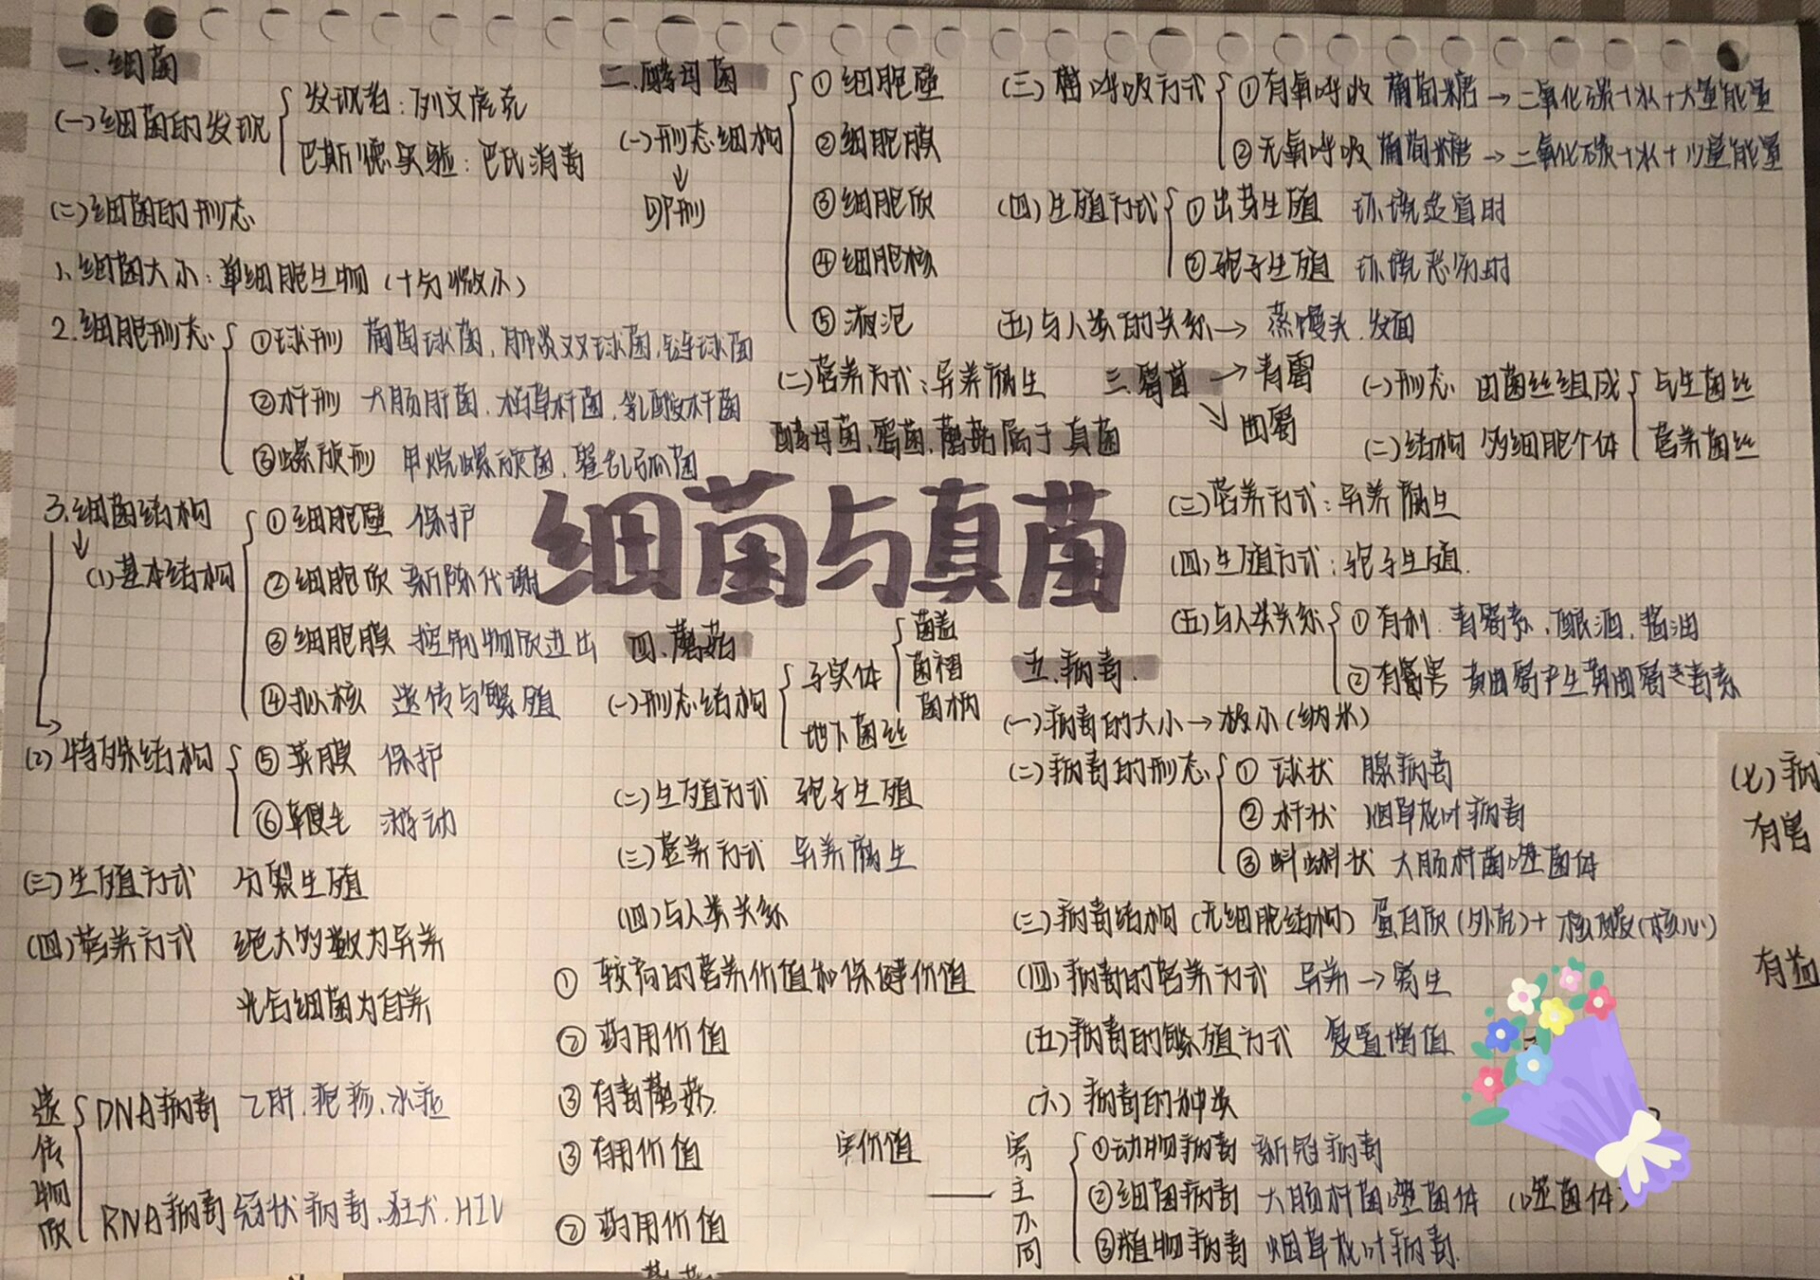 一.细菌
(一)细菌的发现
发现者:列文虎克
巴斯德实验:巴氏消毒
(二)细菌的形态
1、细菌大小:单细胞生物(十分微小)
2.细胞形态
①球形 葡萄球菌,肺炎双球菌,链球菌
②杆形 大肠肝菌.枯草杆菌.乳酸杆菌
③螺旋形 甲烷螺旋菌.霍乱弧菌
3.细菌结构
(1)基本结构
①细胞壁 保护
②细胞质 新陈代谢
③细胞膜 控制物质进出
④拟核 遗传与繁殖
(2)特殊结构
⑤荚膜 保护
⑥鞭毛 游动
(三)生殖方式 分裂生殖
(四)营养方式 绝大多数为异养
光合细菌为自养
遗传物质
DNA病毒 乙肝.疱疹.水痘
RNA病毒 冠状病毒.狂犬.HIV
二.酵母菌
(一)形态结构
卵形
①细胞壁
②细胞膜
③细胞质
④细胞核
⑤液泡
(二)营养方式:异养腐生
酵母菌.霉菌.蘑菇属于真菌
(三)菌呼吸方式
①有氧呼收 葡萄糖→二氧化碳+水+大量能量
②无氧呼吸 葡萄糖→二氧化碳+水+少量能量
(四)生殖方式
①出芽生殖 环境适宜时
②孢子生殖 环境恶劣时
(五)与人类的关系→蒸馒头.发面
细菌与真菌
三.霉菌→青霉
曲霉
(一)形态 由菌丝组成
(二)结构 多细胞个体
气生菌丝
营养菌丝
(三)营养方式:异养腐生
(四)生殖方式:孢子生殖.
(五)与人类关系
①有利.青霉素.酿酒.酱油
②有害 黄曲霉产生黄曲霉毒素
四.蘑菇
(一)形态结构
子实体
菌盖
菌褶
菌柄
地下菌丝
(二)生殖方式 孢子生殖
(三)营养方式 异养腐生
(四)与人类关系
① 较高的营养价值和保健价值
② 药用价值
③ 有毒蘑菇.
③ 有用价值
② 药用价值
蘑菇
五.病毒.
(一)病毒的大小→极小(纳米)
(二)病毒的形态
① 球状 腺病毒
② 杆状 烟草花叶病毒
③ 蝌蚪状 大肠杆菌噬菌体
(三)病毒结构(无细胞结构)蛋白质(外壳)+核酸(核心)
(四)病毒的营养方式 异养→寄生
(五)病毒的繁殖方式 复置增值
(六)病毒的种类
寄主不同
①动物病毒 新冠病毒
②细菌病毒 大肠杆菌噬菌体 (噬菌体)
③植物病毒 烟草花叶病毒.
(七)病
有害
有益